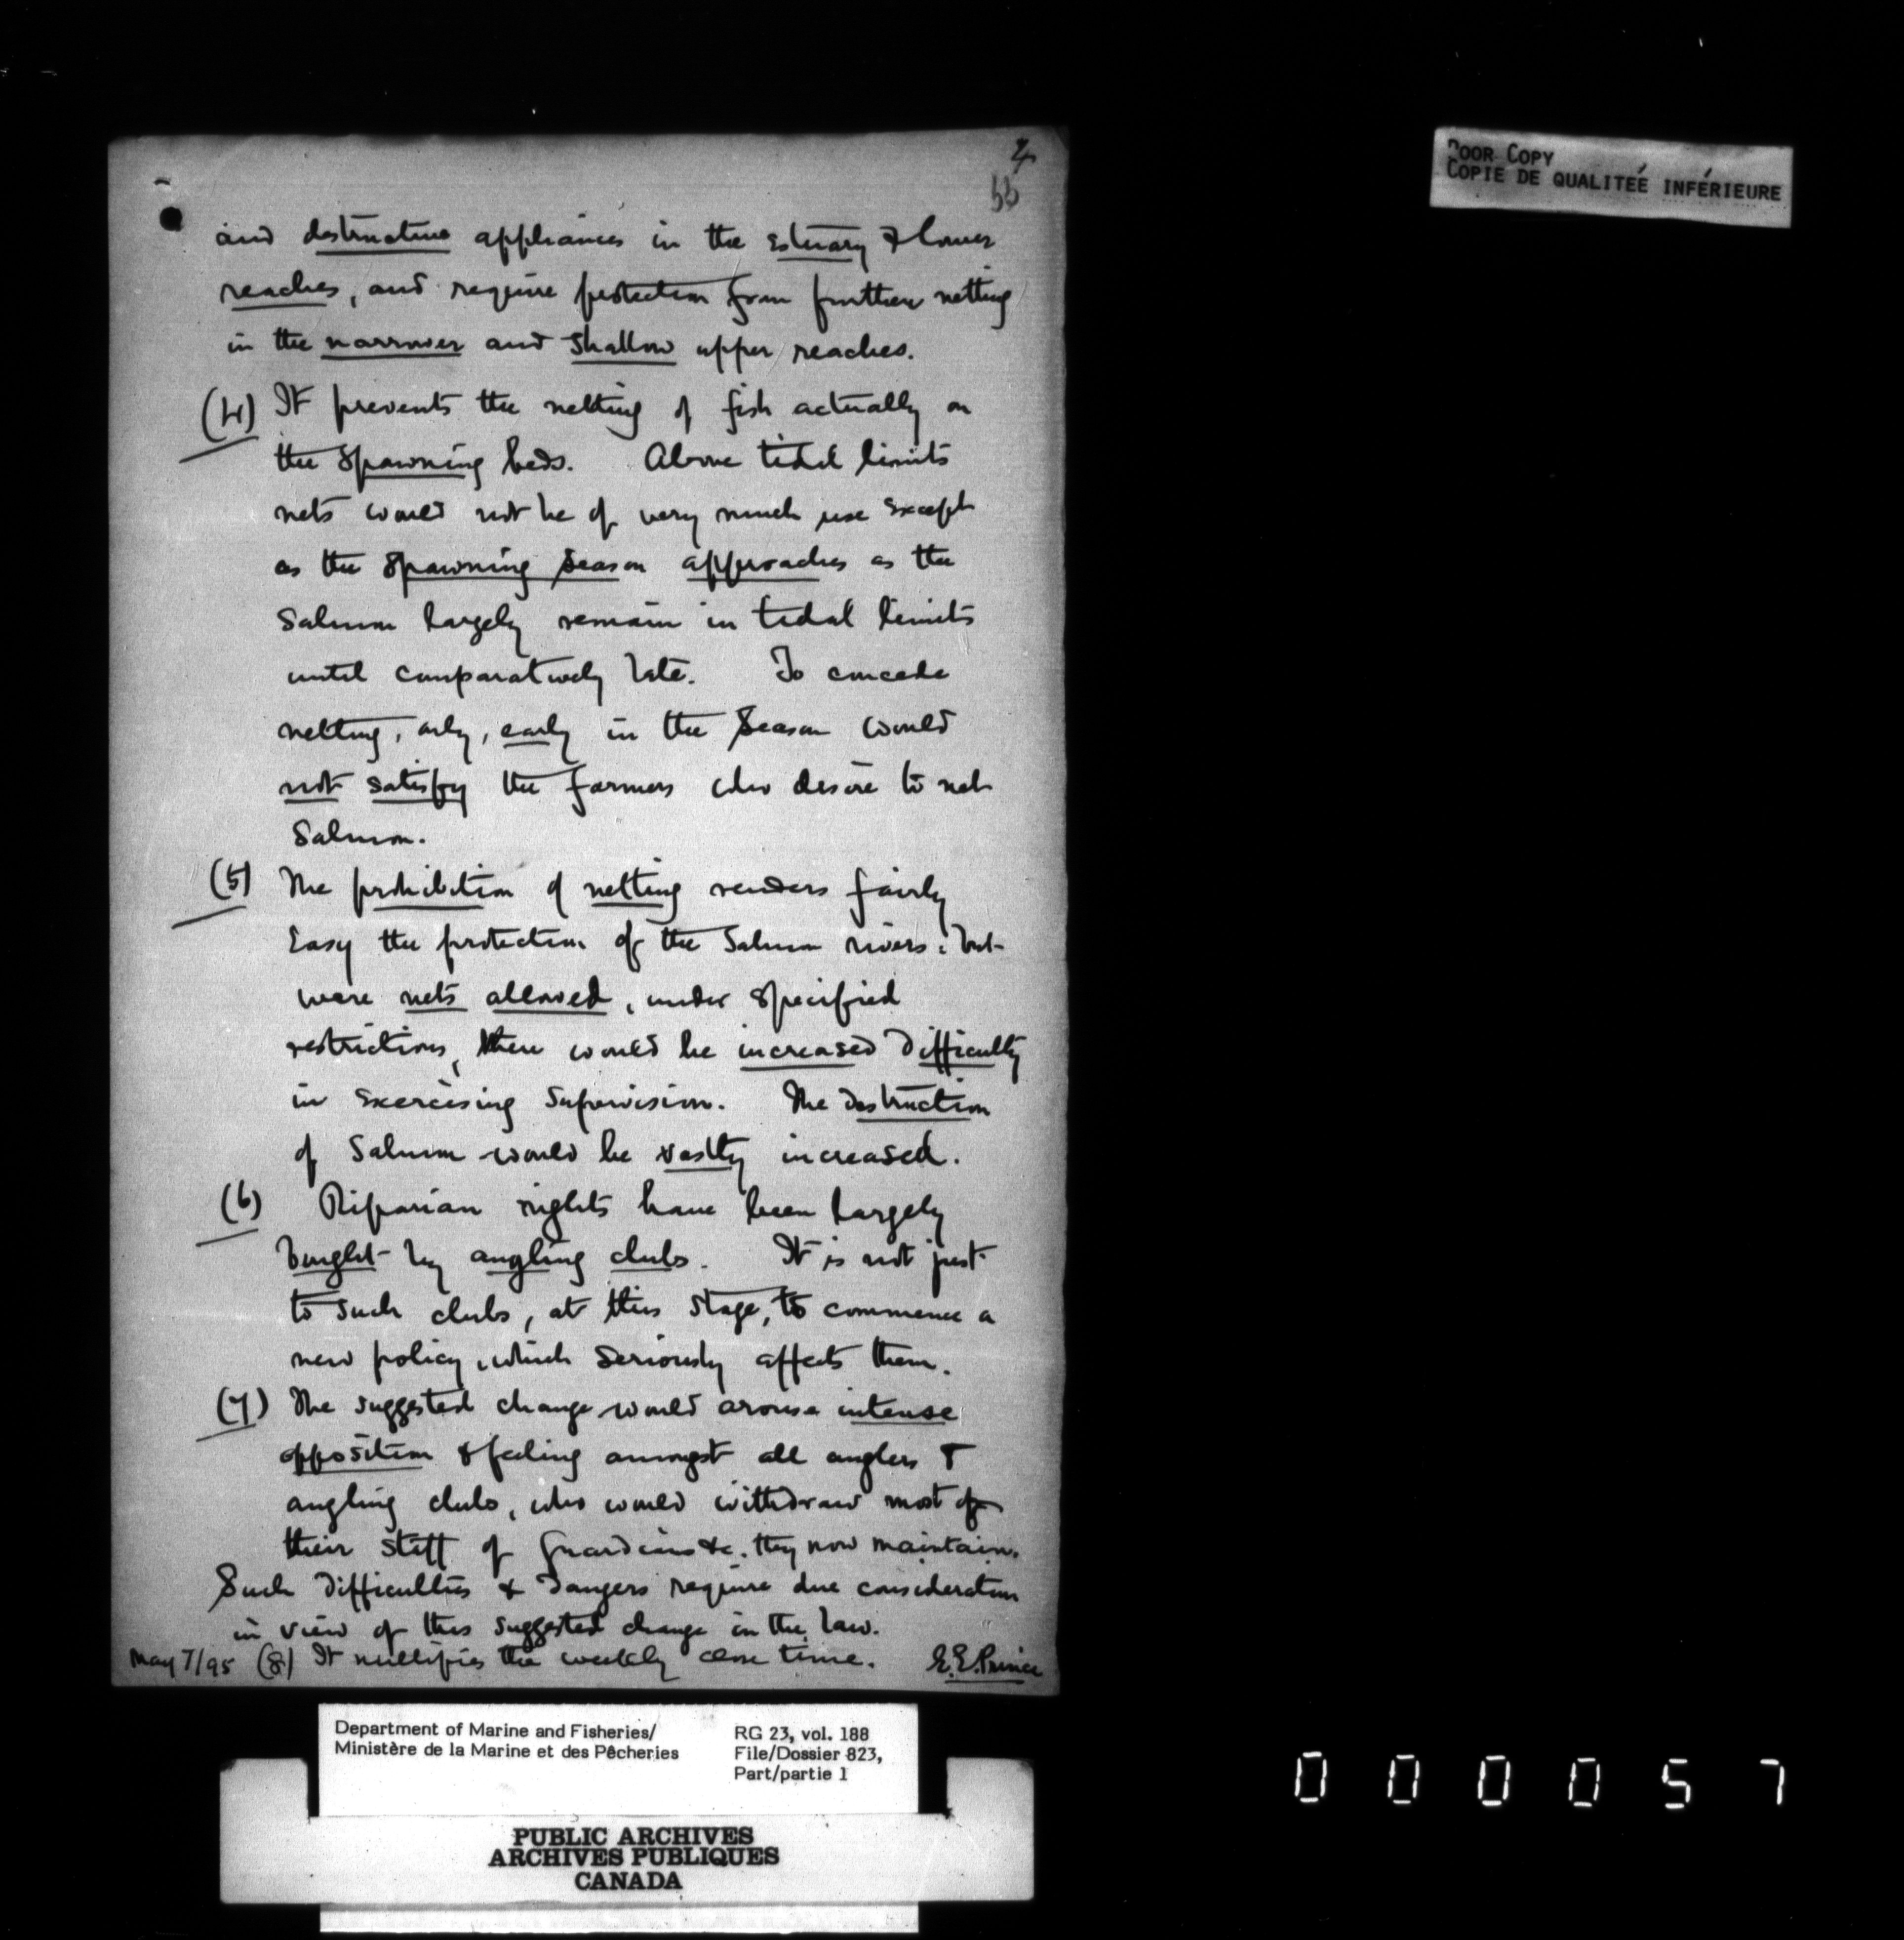 4
53
and destructive appliances in the estuary & lower
reaches, and require protection from further netting
in the narrower and shallow upper reaches.
(4) It prevents the netting of fish actually on
the spawning beds. Above tidal limits
nets would not be of very much use except
as the spawning season approaches as the
Salmon largely remain in tidal limits
until comparatively late. To concede
netting, only, early in the season would
not satisfy the farmers who desire to net
Salmon.
(5) The prohibition of netting renders fairly
easy the protection of the Salmon rivers: but
were nets allowed, under specified
restrictions, there would be increased difficulty
in exercising supervision. The destruction
of Salmon would be vastly increased.
(6) Riparian rights have been largely
bought by angling clubs. It is not just
to such clubs, at this stage, to commence a
new policy, which seriously affects them.
(7) The suggested change would arouse intense
opposition & feeling amongst all anglers &
angling clubs, who would withdraw most of
their staff of guardians &c. they now maintain.
Such difficulties & dangers require due consideration
in view of this suggested change in the law.
May 7/95 (8) It nullifies the weekly close time. E.E. Prince
POOR COPY
COPIE DE QUALITEÉ INFÉRIEURE
Department of Marine and Fisheries/
Ministère de la Marine et des Pêcheries
RG 23, vol. 188
File/Dossier 823,
Part/partie 1
PUBLIC ARCHIVES
ARCHIVES PUBLIQUES
CANADA
000057